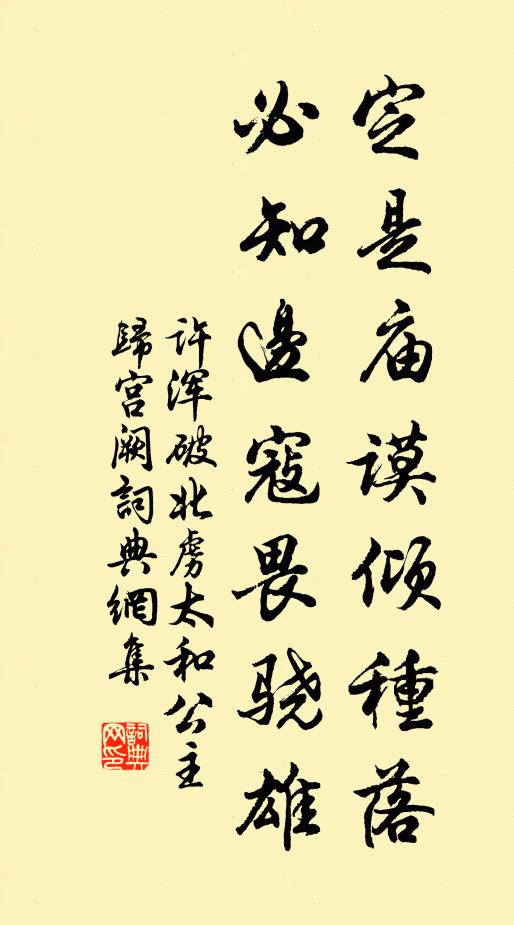 定是庙谟倾種落
必知邊寇畏骁雄
许浑破北虏太和公主
歸宫阙詞典網集
詞典
网印